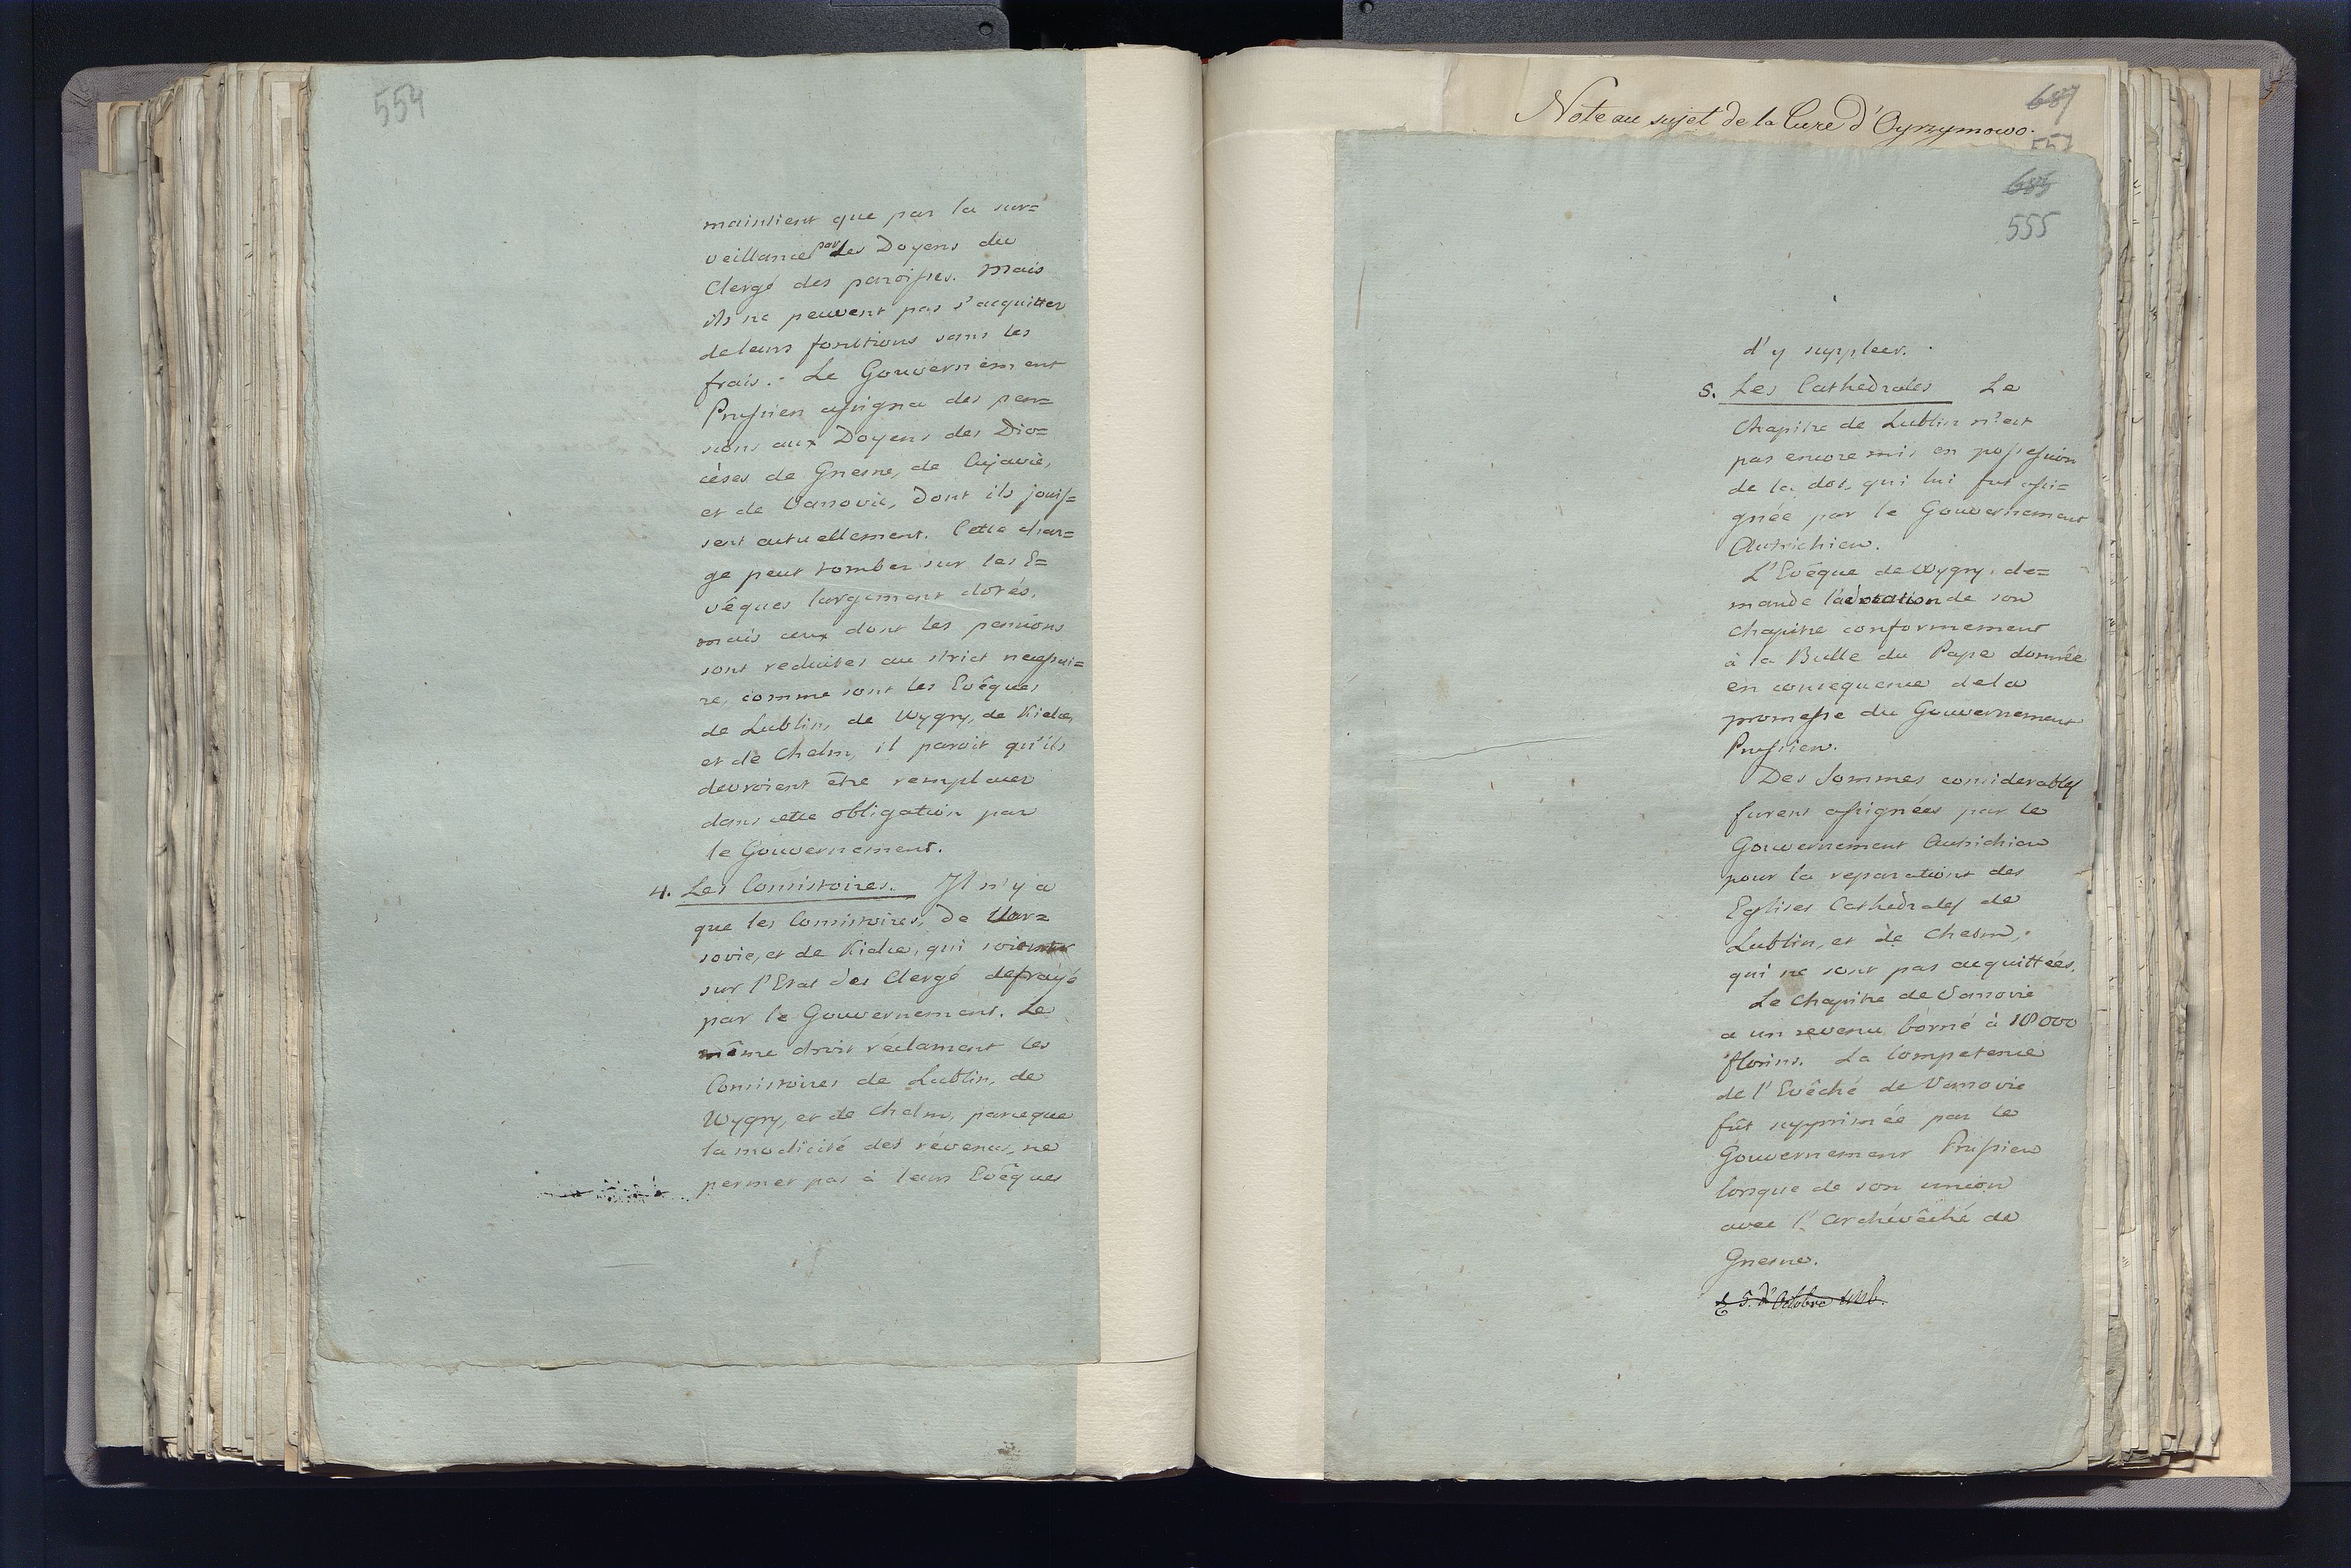 554
maintient que par la sur=
veillance par les Doyens du
Clergé des paroisses. Mais
ils ne peuvent pas s'acquitter
de leurs fonctions sans les
frais. - Le Gouvernement
Prussien assigna des pen=
sions aux Doyens des Dio=
cèses de Gnesne, de Cujavie,
et de Varsovie, dont ils jouis=
sent actuellement. Cette char=
ge peut tomber sur les E=
vêques largement dotés,
mais ceux dont les pensions
sont reduites au strict necessai=
re, comme sont les Evêques
de Lublin, de Wygry, de Kielce,
et de Chelm, il paroit qu'ils
devroient être remplacer
dans cette obligation par
le Gouvernement.
4. Les Consistoires. Il n'y a
que les Consistoires, de Var=
sovie, et de Kielce, qui soient
sur l'Etat des Clergé defrayé
par le Gouvernement. Le
même droit réclament les
Consistoires de Lublin, de
Wygry, et de Chelm, parceque
la modicité des révenus, ne
permet pas à leurs Evêques
Note au sujet de la Cure d'Oyrzymowo.
687
557
685
555
d'y suppleer.
5. Les Cathedrales Le
Chapitre de Lublin n'est
pas encore mis en possession
de la dot, qui lui fut assi=
gnée par le Gouvernement
Autrichien.
L'Evêque de Wygry de=
mande la dotation de son
Chapitre conformement
à la Bulle du Pape donnée
en consequence de la
promesse du Gouvernement
Prussien.
Des Sommes considerables
furent assignées par le
Gouvernement Autrichien
pour la reparations des
Eglises Cathedrales de
Lublin, et de Chelm,
qui ne sont pas acquittées.
Le Chapitre de Varsovie
a un revenu borné à 18000
florins. La Competence
de l'Evêché de Varsovie
fût supprimée par le
Gouvernement Prussien
lorsque de son union
avec l'Archévêché de
Gnesne.
5. d'Octobre